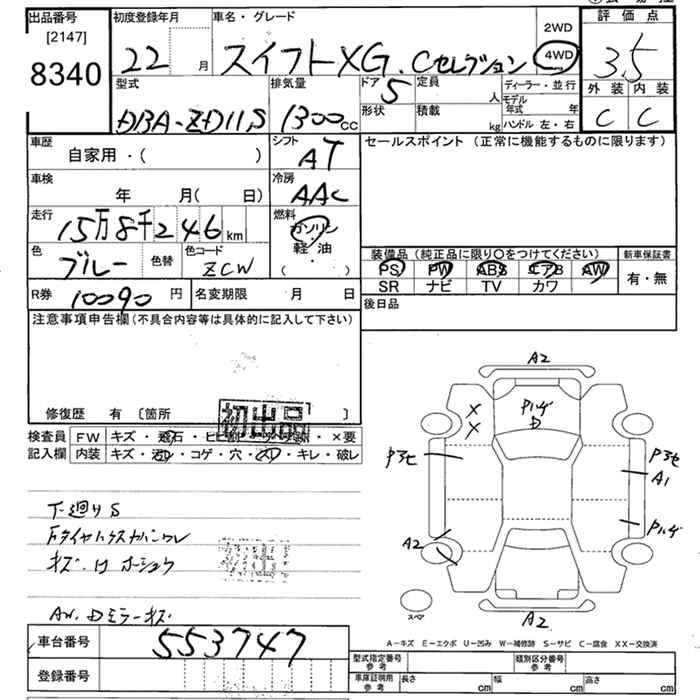 出品番号
[2147]
8340
初度登録年月
22 月
車名・グレード
スイフト XG.Cセレクション
2WD
4WD
評価点
3.5
外装 内装
C C
型式
DBA-ZD11S
排気量
1300cc
ドア 5
形状
定員 人
積載 kg
ディーラー・並行
モデル年式 年
ハンドル 左・右
車歴
自家用・( )
シフト
AT
セールスポイント (正常に機能するものに限ります)
車検
年 月( 日)
冷房
AAC
走行
15万8千246km
燃料
ガソリン
軽油
( )
色
ブルー
色替
色コード
ZCW
装備品(純正品に限り○をつけてください)
新車保証書
PS PW ABS エアB AW
SR ナビ TV カワ
有・無
R券 10090 円
名変期限 月 日
後日品
注意事項申告欄(不具合内容等は具体的に記入して下さい)
修復歴 有 〔箇所 〕
初出品
検査員
記入欄
FW キズ・飛石・ヒビ ・×要
内装 キズ・汚レ・コゲ・穴・スレ・キレ・破レ
下廻りS
キズ.サ ホーシュウ
AW.Dミラーキズ
車台番号
553747
登録番号
A2
P1ハゲ
D
X
X
P3セ
P3セ
A1
P1ハゲ
A2
スペア
A2
A−キズ E−エクボ U−凹み W−補修跡 S−サビ C−腐食 XX−交換済
型式指定番号
参考
類別区分番号
参考
車庫証明用
参考
長さ cm
幅 cm
高さ cm